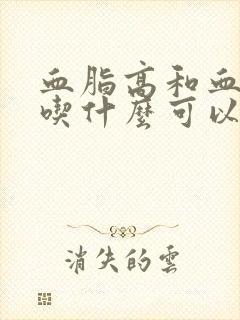 血脂高和血
喫什麼可以
消失的雲